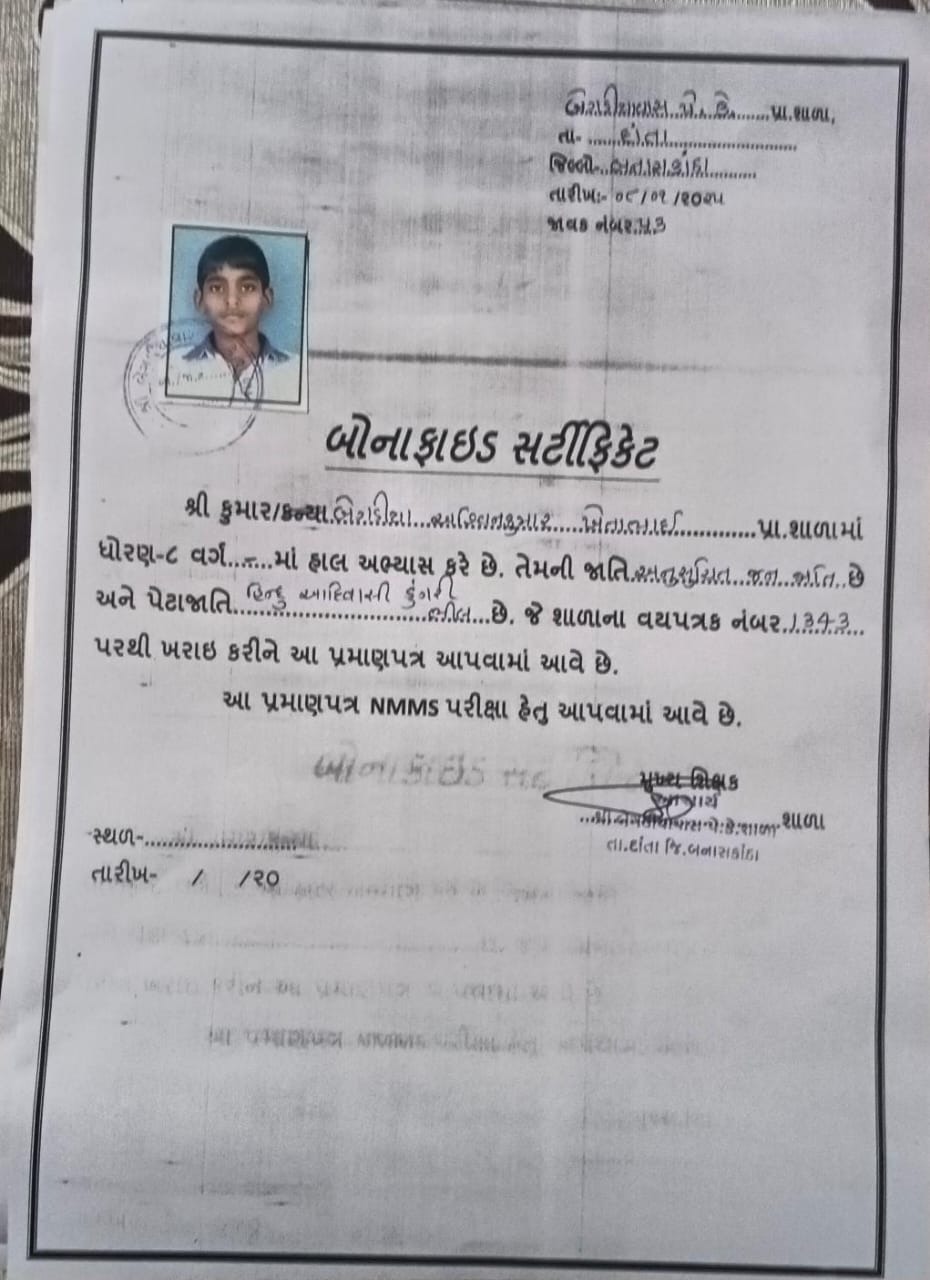 બેગડીયાવાસ પે. કે. પ્રા.શાળા,
તા- દાંતા
જિલ્લો- બનાસકાંઠા
તારીખ:- ૦૮/૦૧/૨૦૨૫
જાવક નંબર. ૫૩
બોનાફાઇડ સર્ટીફિકેટ
શ્રી કુમાર/કન્યા. અશ્વિનકુમાર પ્રા.શાળામાં
ધોરણ-૮ વર્ગ...-...માં હાલ અભ્યાસ કરે છે. તેમની જાતિ અનુસુચિત જન જાતિ છે
અને પેટાજાતિ હિન્દુ આદિવાસી ડુંગરી
ભીલ છે. જે શાળાના વયપત્રક નંબર 1343
પરથી ખરાઇ કરીને આ પ્રમાણપત્ર આપવામાં આવે છે.
આ પ્રમાણપત્ર NMMS પરીક્ષા હેતુ આપવામાં આવે છે.
મુખ્ય શિક્ષક
આચાર્ય
પે.કે.શાળા શાળા
તા.દાંતા જિ.બનાસકાંઠા
સ્થળ-
તારીખ- / /૨૦